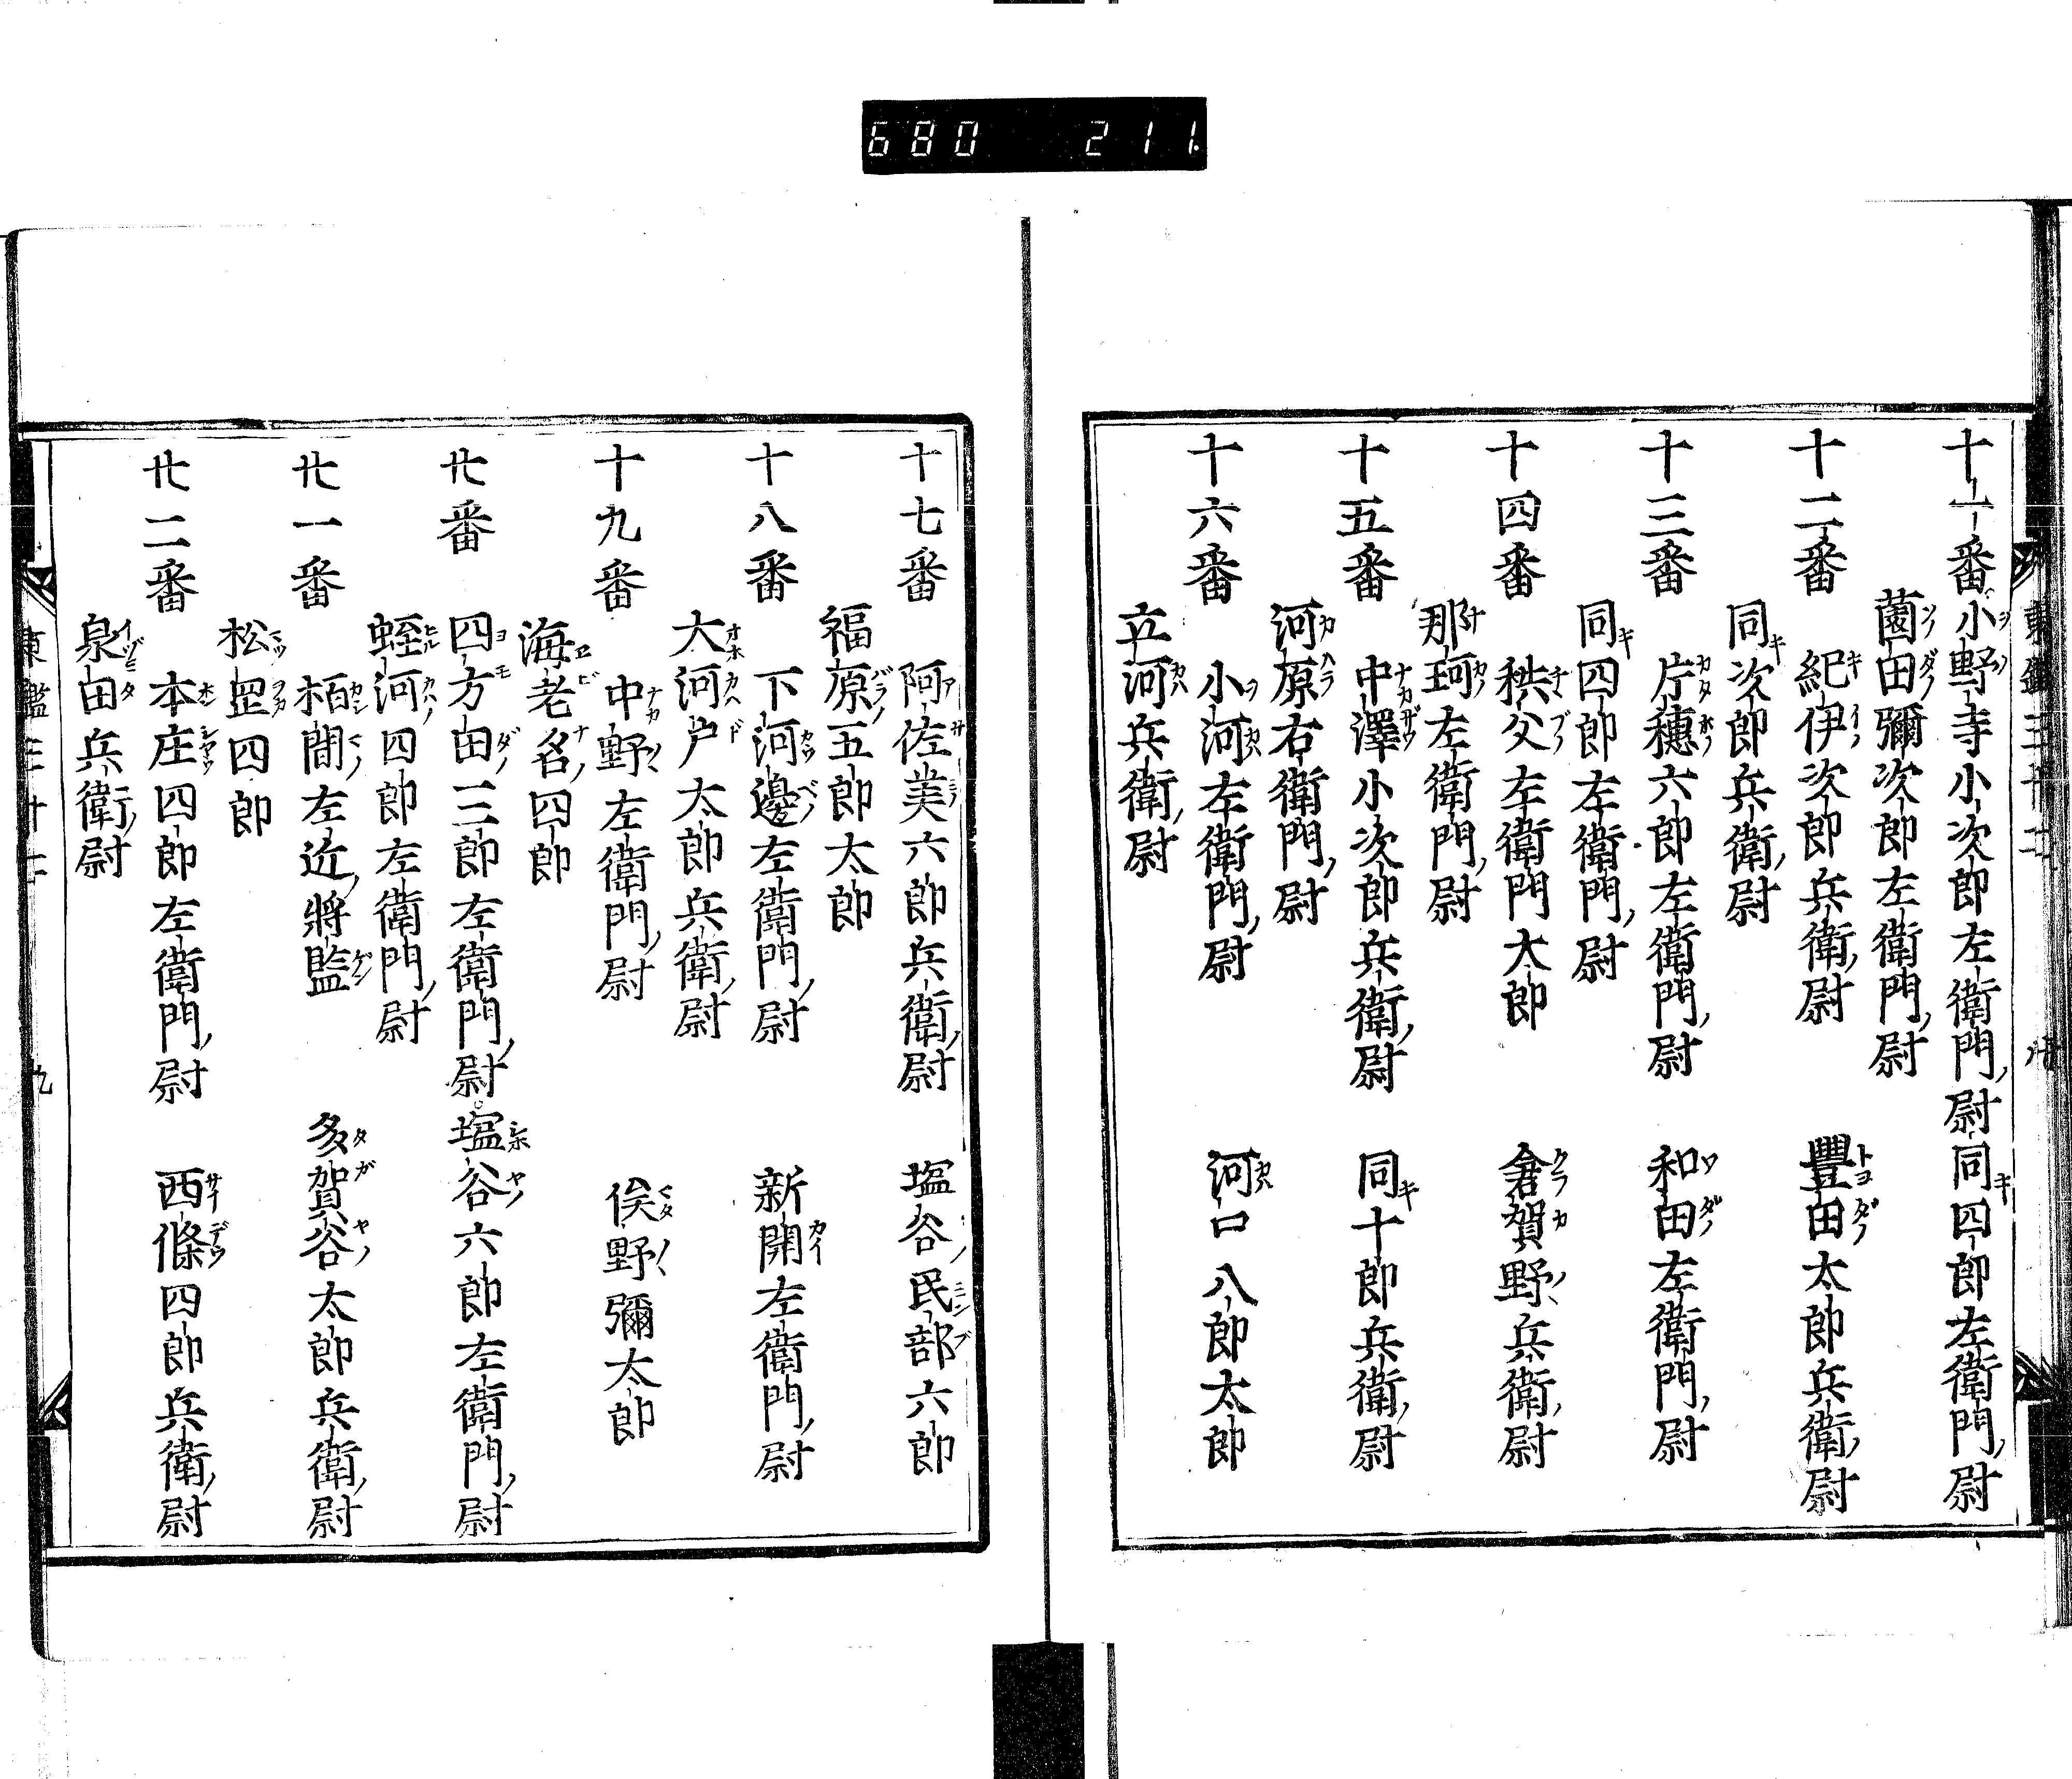 680 211
十一番 小野寺小次郎左衛門尉 同四郎左衛門尉
薗田彌次郎左衛門尉
十二番 紀伊次郎兵衛尉 豐田太郎兵衛尉
同次郎兵衛尉
十三番 片穗六郎左衛門尉 和田左衛門尉
同四郎左衛門尉
十四番 秩父左衛門太郎 倉賀野兵衛尉
那珂左衛門尉
十五番 中澤小次郎兵衛尉 同十郎兵衛尉
河原右衛門尉
十六番 小河左衛門尉 河口八郎太郎
立河兵衛尉
十七番 阿佐美六郎兵衛尉 塩谷民部六郎
福原五郎太郎
十八番 下河邊左衛門尉 新開左衛門尉
大河戸太郎兵衛尉
十九番 中野左衛門尉 俣野彌太郎
海老名四郎
廿番 四方田三郎左衛門尉 塩谷六郎左衛門尉
蛭河四郎左衛門尉
廿一番 栢間左近將監 多賀谷太郎兵衛尉
松罡四郎
廿二番 本庄四郎左衛門尉 西條四郎兵衛尉
泉田兵衛尉
九